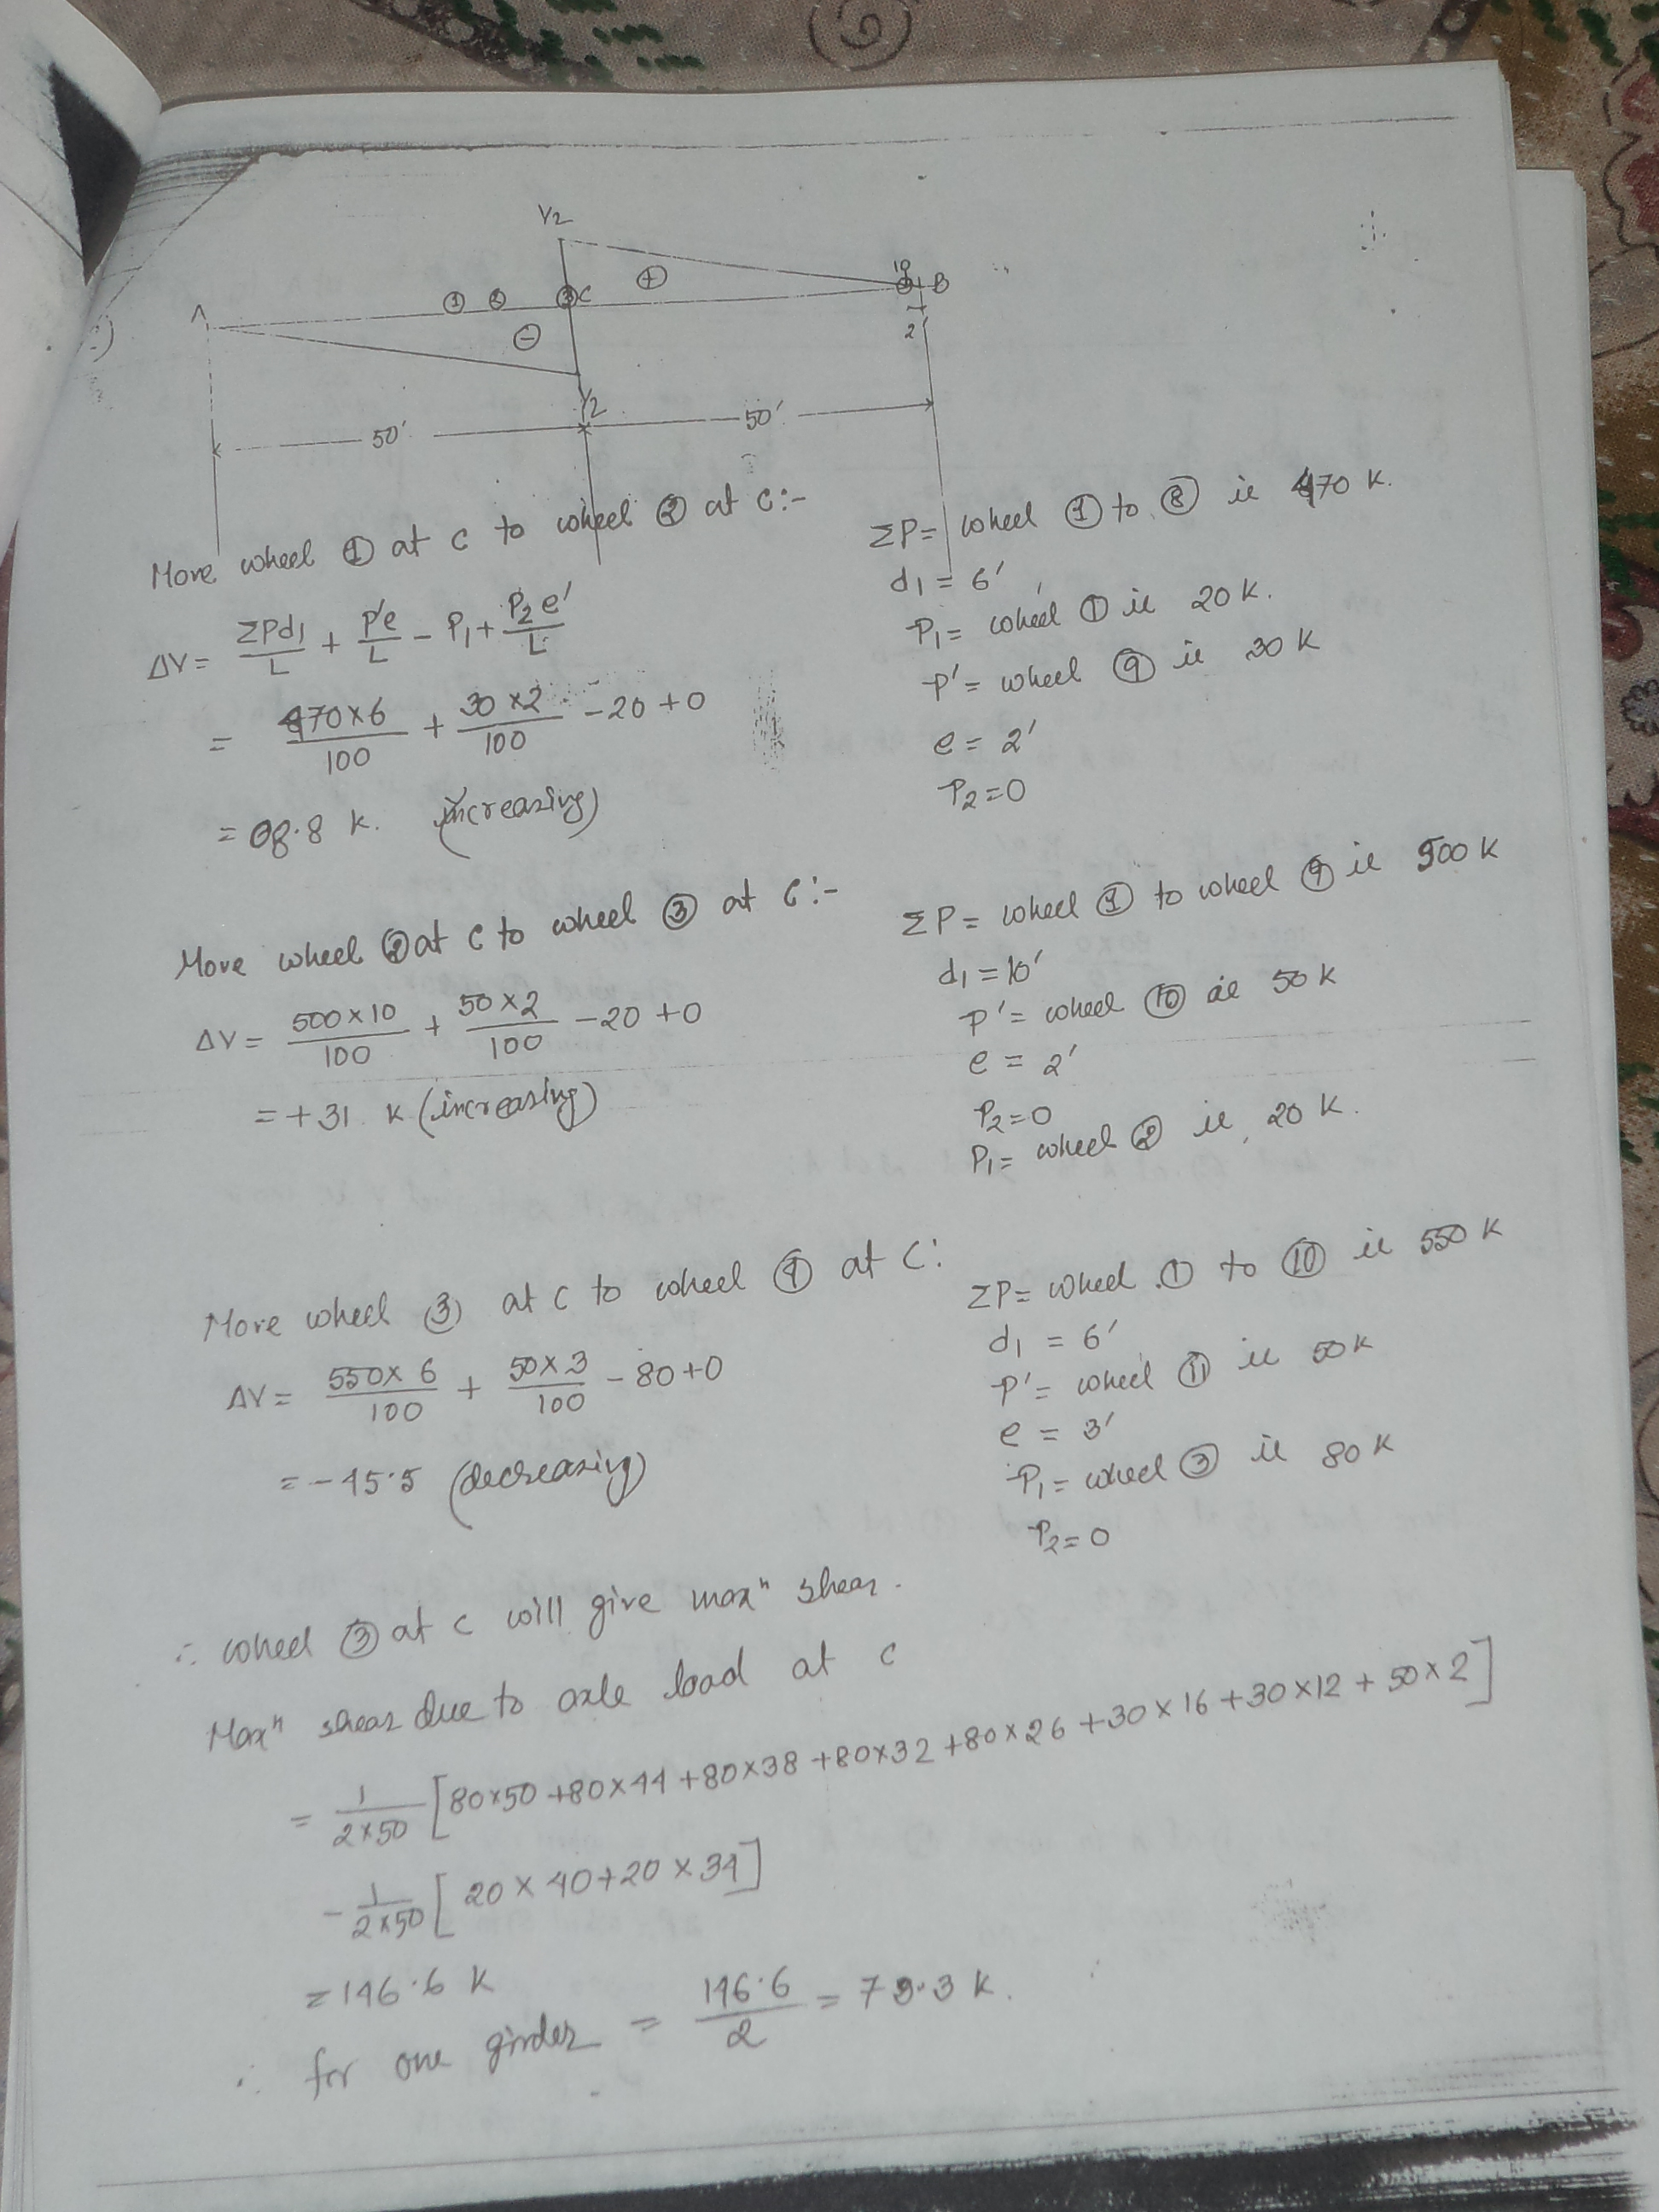 Y2
10
A ① ② ③C ⊕ B
⊖ 2'
Y2
50' 50'
Move wheel ① at C to wheel ② at C:-
ΔV = ΣPd1/L + P'e/L - P1 + P2e'/L
= 470×6/100 + 30×2/100 - 20 + 0
= 08.8 K. (increasing)
ΣP = wheel ① to ⑧ ie 470 K.
d1 = 6'
P1 = wheel ① ie 20 K.
P' = wheel ⑨ ie 30 K
e = 2'
P2 = 0
Move wheel ② at C to wheel ③ at C:-
ΔV = 500×10/100 + 50×2/100 - 20 + 0
= +31 K (increasing)
ΣP = wheel ① to wheel ⑨ ie 500 K
d1 = 10'
P' = wheel ⑩ ie 50 K
e = 2'
P2 = 0
P1 = wheel ② ie 20 K.
Move wheel ③ at C to wheel ④ at C:
ΔV = 550×6/100 + 50×3/100 - 80 + 0
= -45.5 (decreasing)
ΣP = wheel ① to ⑩ ie 550 K
d1 = 6'
P' = wheel ⑪ ie 50 K
e = 3'
P1 = wheel ③ ie 80 K
P2 = 0
∴ wheel ③ at C will give maxᵐ shear.
Maxᵐ shear due to axle load at C
= 1/2×50 [80×50 + 80×44 + 80×38 + 80×32 + 80×26 + 30×16 + 30×12 + 50×2]
- 1/2×50 [20×40 + 20×34]
= 146.6 K
∴ for one girder = 146.6/2 = 73.3 K.